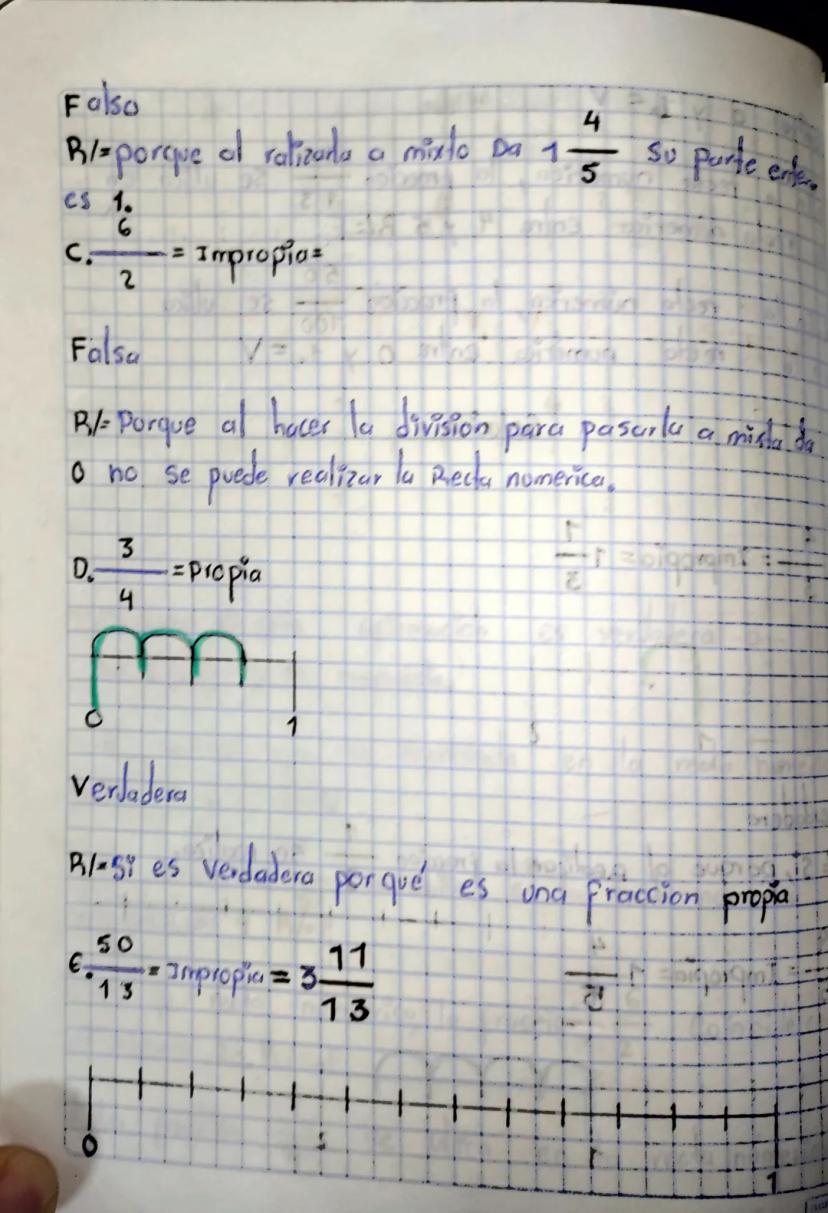 Falso
R/= porque al ralizarla a mixto Da 1 4/5 Su parte entera
es 1.
C. 6/2 = Impropia=
Falsa
R/= Porque al hacer la división para pasarla a mista da
0 no se puede realizar la Recta numerica.
D. 3/4 = Propia
0 1
Verdadera
R/= Si es Verdadera porqué es una fraccion propia
E. 50/13 = Impropia = 3 11/13
0 1